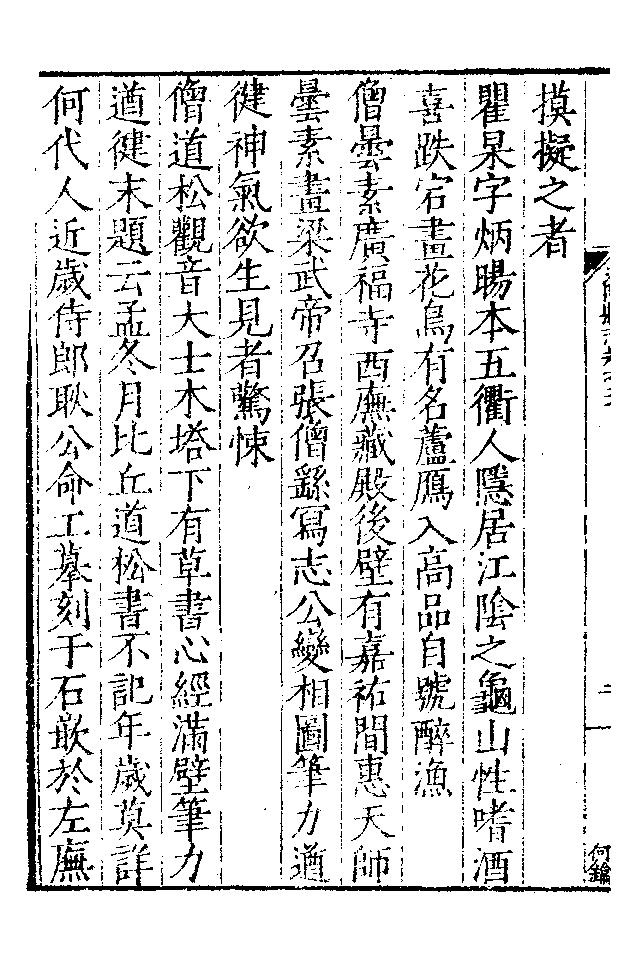 摸擬之者
瞿杲字炳暘本五衢人隱居江陰之龜山性嗜酒
喜跌宕畫花鳥有名蘆鴈入高品自號醉漁
僧曇素廣福寺西廡藏殿後壁有嘉祐間惠天師
曇素畫梁武帝召張僧繇寫志公變相圖筆力遒
徤神氣欲生見者驚悚
僧道松觀音大士木塔下有草書心經滿壁筆力
遒徤末題云孟冬月比丘道松書不記年歲莫詳
何代人近歲侍郎耿公命工摹刻于石嵌於左廡
何鑰